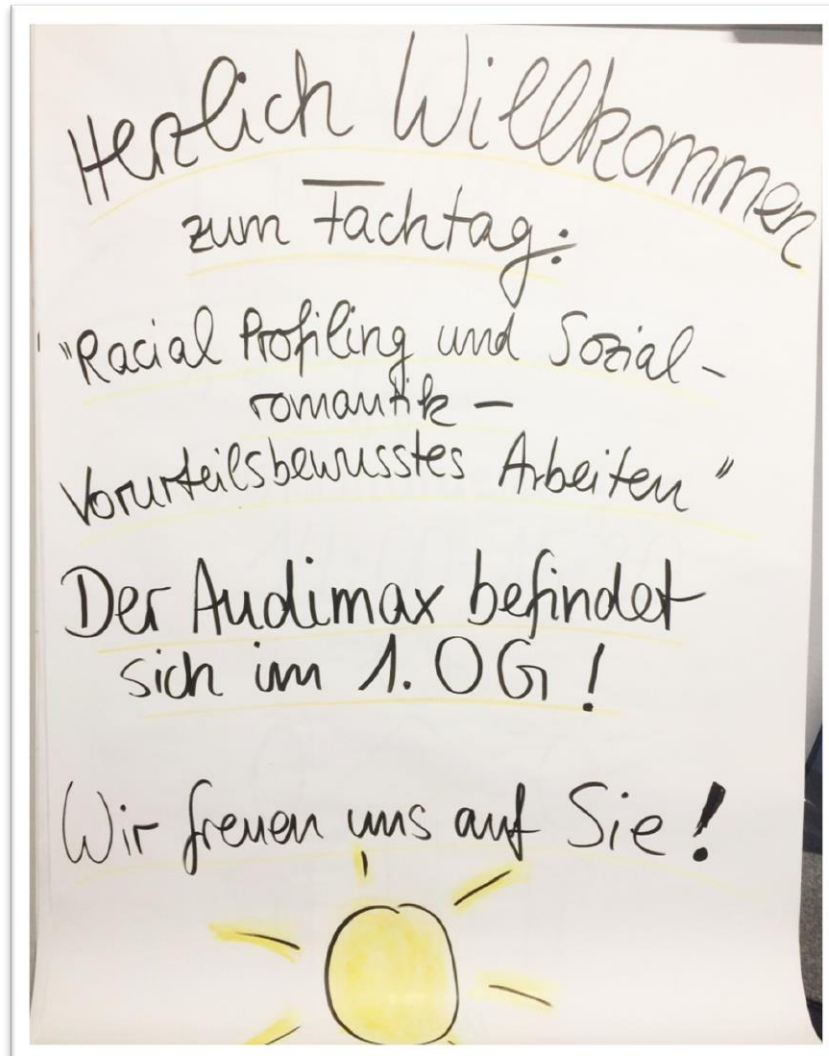 Herzlich Willkommen
zum Fachtag:
"Racial Profiling und Sozial-
romantik -
Vorurteilsbewusstes Arbeiten"
Der Audimax befindet
sich im 1. OG!
Wir freuen uns auf Sie!